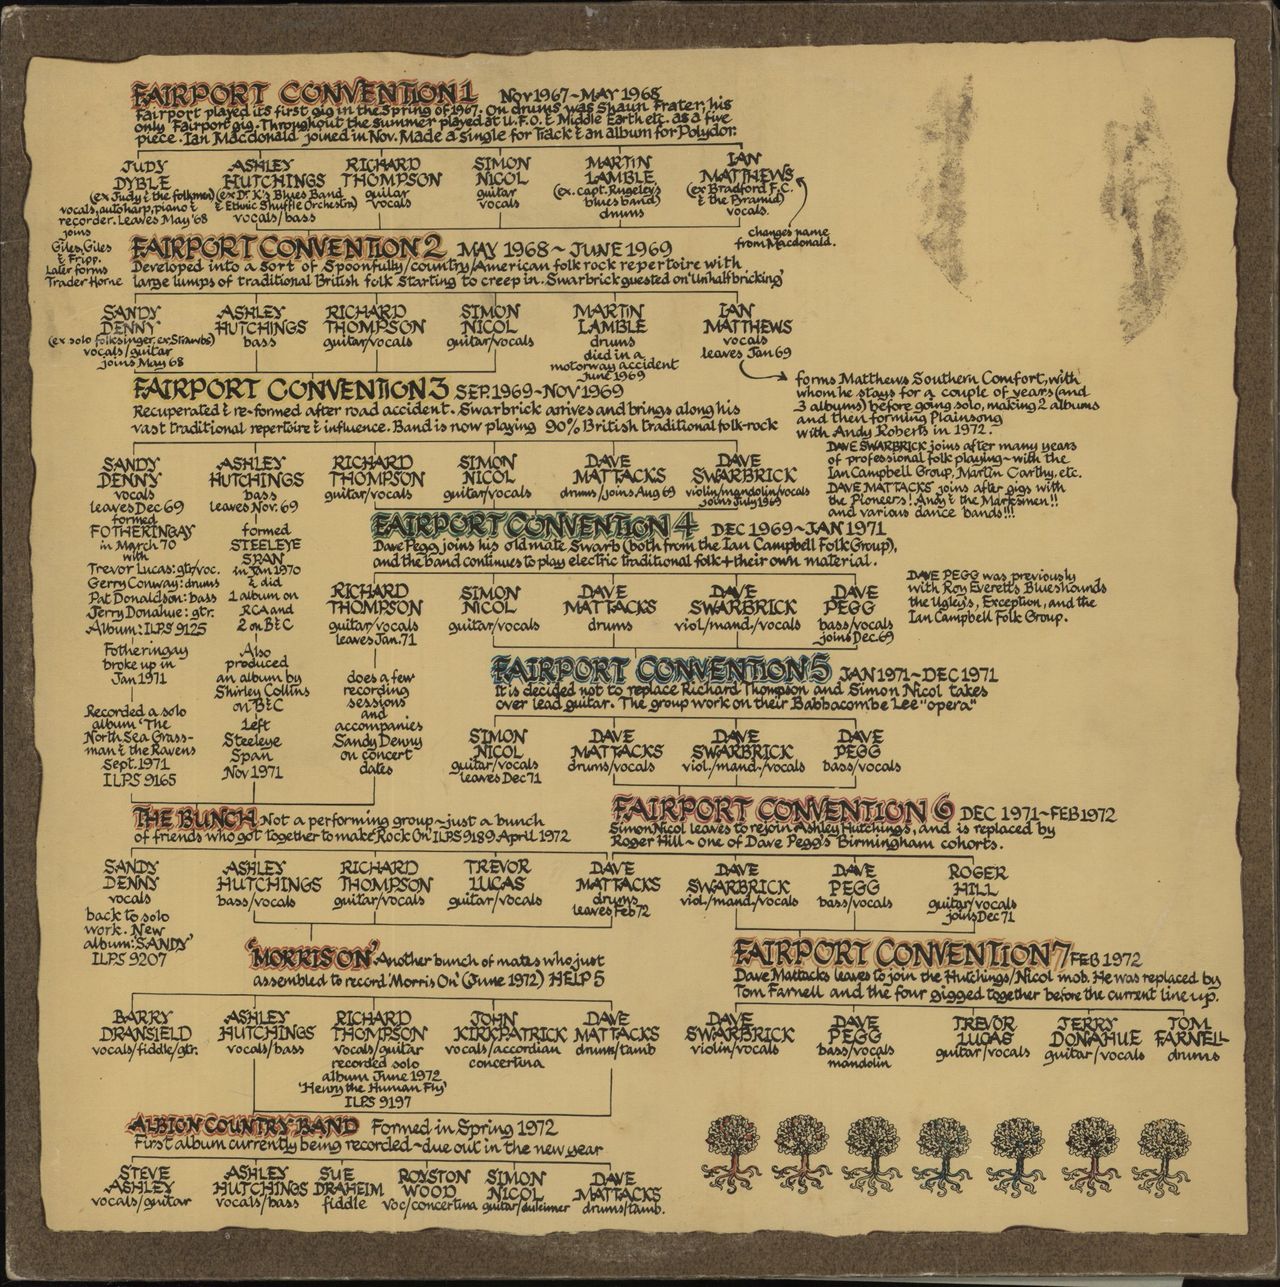 FAIRPORT CONVENTION 1 Nov 1967~MAY 1968
Fairport played its first gig in the Spring of 1967. On drums was Shaun Frater, his
only Fairport gig. Throughout the summer played at U.F.O. & Middle Earth etc. as a five
piece. Ian Macdonald joined in Nov. Made a single for Track & an album for Polydor.
JUDY
DYBLE
(ex Judy & the folkmen)
vocals, autoharp, piano &
recorder. Leaves May '68
joins
Giles, Giles
& Fripp.
Later forms
Trader Horne
ASHLEY
HUTCHINGS
(ex Dr. K's Blues Band
& Ethnic Shuffle Orchestra)
vocals/bass
RICHARD
THOMPSON
guitar
vocals
SIMON
NICOL
guitar
vocals
MARTIN
LAMBLE
(ex. Capt. Rugeley's
blues band)
drums
IAN
MATTHEWS
(ex Bradford F.C.
& the Pyramid)
vocals.
changes name
from Macdonald.
FAIRPORT CONVENTION 2 MAY 1968~JUNE 1969
Developed into a sort of Spoonfully/country/American folk rock repertoire with
large lumps of traditional British folk starting to creep in. Swarbrick guested on 'Unhalfbricking'
SANDY
DENNY
(ex solo folksinger, ex Strawbs)
vocals/guitar
joins May 68
ASHLEY
HUTCHINGS
bass
RICHARD
THOMPSON
guitar/vocals
SIMON
NICOL
guitar/vocals
MARTIN
LAMBLE
drums
died in a
motorway accident
June 1969
IAN
MATTHEWS
vocals
leaves Jan 69
forms Matthews Southern Comfort, with
whom he stays for a couple of years (and
3 albums) before going solo, making 2 albums
and then forming Plainsong
with Andy Roberts in 1972.
FAIRPORT CONVENTION 3 SEP. 1969~NOV 1969
Recuperated & re-formed after road accident. Swarbrick arrives and brings along his
vast traditional repertoire & influence. Band is now playing 90% British traditional folk-rock
DAVE SWARBRICK joins after many years
of professional folk playing~with the
Ian Campbell Group, Martin Carthy, etc.
DAVE MATTACKS joins after gigs with
the Pioneers! Andy & the Marksmen!!
and various dance bands!!!
SANDY
DENNY
vocals
leaves Dec 69
formed
FOTHERINGAY
in March 70
with
Trevor Lucas: gtr/voc.
Gerry Conway: drums
Pat Donaldson: bass
Jerry Donahue: gtr.
Album: ILPS 9125
Fotheringay
broke up in
Jan 1971
Recorded a solo
album 'The
North Sea Grass-
man & the Ravens
Sept. 1971
ILPS 9165
ASHLEY
HUTCHINGS
bass
leaves Nov. 69
formed
STEELEYE
SPAN
in Jan 1970
& did
1 album on
RCA and
2 on B&C
Also
produced
an album by
Shirley Collins
on B&C
Left
Steeleye
Span
Nov 1971
RICHARD
THOMPSON
guitar/vocals
SIMON
NICOL
guitar/vocals
DAVE
MATTACKS
drums/joins Aug 69
DAVE
SWARBRICK
violin/mandolin/vocals
joins July 1969
FAIRPORT CONVENTION 4 DEC 1969~JAN 1971
Dave Pegg joins his old mate Swarb (both from the Ian Campbell Folk Group),
and the band continues to play electric traditional folk + their own material.
RICHARD
THOMPSON
guitar/vocals
leaves Jan. 71
does a few
recording
sessions
and
accompanies
Sandy Denny
on concert
dates
SIMON
NICOL
guitar/vocals
DAVE
MATTACKS
drums
DAVE
SWARBRICK
viol/mand./vocals
DAVE
PEGG
bass/vocals
joins Dec. 69
DAVE PEGG was previously
with Roy Everett's Blueshounds
the Ugly's, Exception, and the
Ian Campbell Folk Group.
FAIRPORT CONVENTION 5 JAN 1971~DEC 1971
It is decided not to replace Richard Thompson and Simon Nicol takes
over lead guitar. The group work on their Babbacombe Lee "opera"
SIMON
NICOL
guitar/vocals
leaves Dec 71
DAVE
MATTACKS
drums/vocals
DAVE
SWARBRICK
viol./mand./vocals
DAVE
PEGG
bass/vocals
THE BUNCH Not a performing group~just a bunch
of friends who got together to make 'Rock On' ILPS 9189. April 1972
FAIRPORT CONVENTION 6 DEC 1971~FEB 1972
Simon Nicol leaves to rejoin Ashley Hutchings, and is replaced by
Roger Hill~one of Dave Pegg's Birmingham cohorts.
SANDY
DENNY
vocals
back to solo
work. New
album: 'SANDY'
ILPS 9207
ASHLEY
HUTCHINGS
bass/vocals
RICHARD
THOMPSON
guitar/vocals
TREVOR
LUCAS
guitar/vocals
DAVE
MATTACKS
drums
leaves Feb 72
DAVE
SWARBRICK
viol./mand./vocals
DAVE
PEGG
bass/vocals
ROGER
HILL
guitar/vocals
joins Dec 71
'MORRIS ON' Another bunch of mates who just
assembled to record 'Morris On' (June 1972) HELP 5
FAIRPORT CONVENTION 7 FEB 1972
Dave Mattacks leaves to join the Hutchings/Nicol mob. He was replaced by
Tom Farnell and the four gigged together before the current line up.
BARRY
DRANSIELD
vocals/fiddle/gtr.
ASHLEY
HUTCHINGS
vocals/bass
RICHARD
THOMPSON
vocals/guitar
recorded solo
album June 1972
'Henry the Human Fly'
ILPS 9197
JOHN
KIRKPATRICK
vocals/accordian
concertina
DAVE
MATTACKS
drums/tamb
DAVE
SWARBRICK
violin/vocals
DAVE
PEGG
bass/vocals
mandolin
TREVOR
LUCAS
guitar/vocals
JERRY
DONAHUE
guitar/vocals
TOM
FARNELL
drums
ALBION COUNTRY BAND Formed in Spring 1972
First album currently being recorded~due out in the new year
STEVE
ASHLEY
vocals/guitar
ASHLEY
HUTCHINGS
vocals/bass
SUE
DRAHEIM
fiddle
ROYSTON
WOOD
voc/concertina
SIMON
NICOL
guitar/dulcimer
DAVE
MATTACKS
drums/tamb.